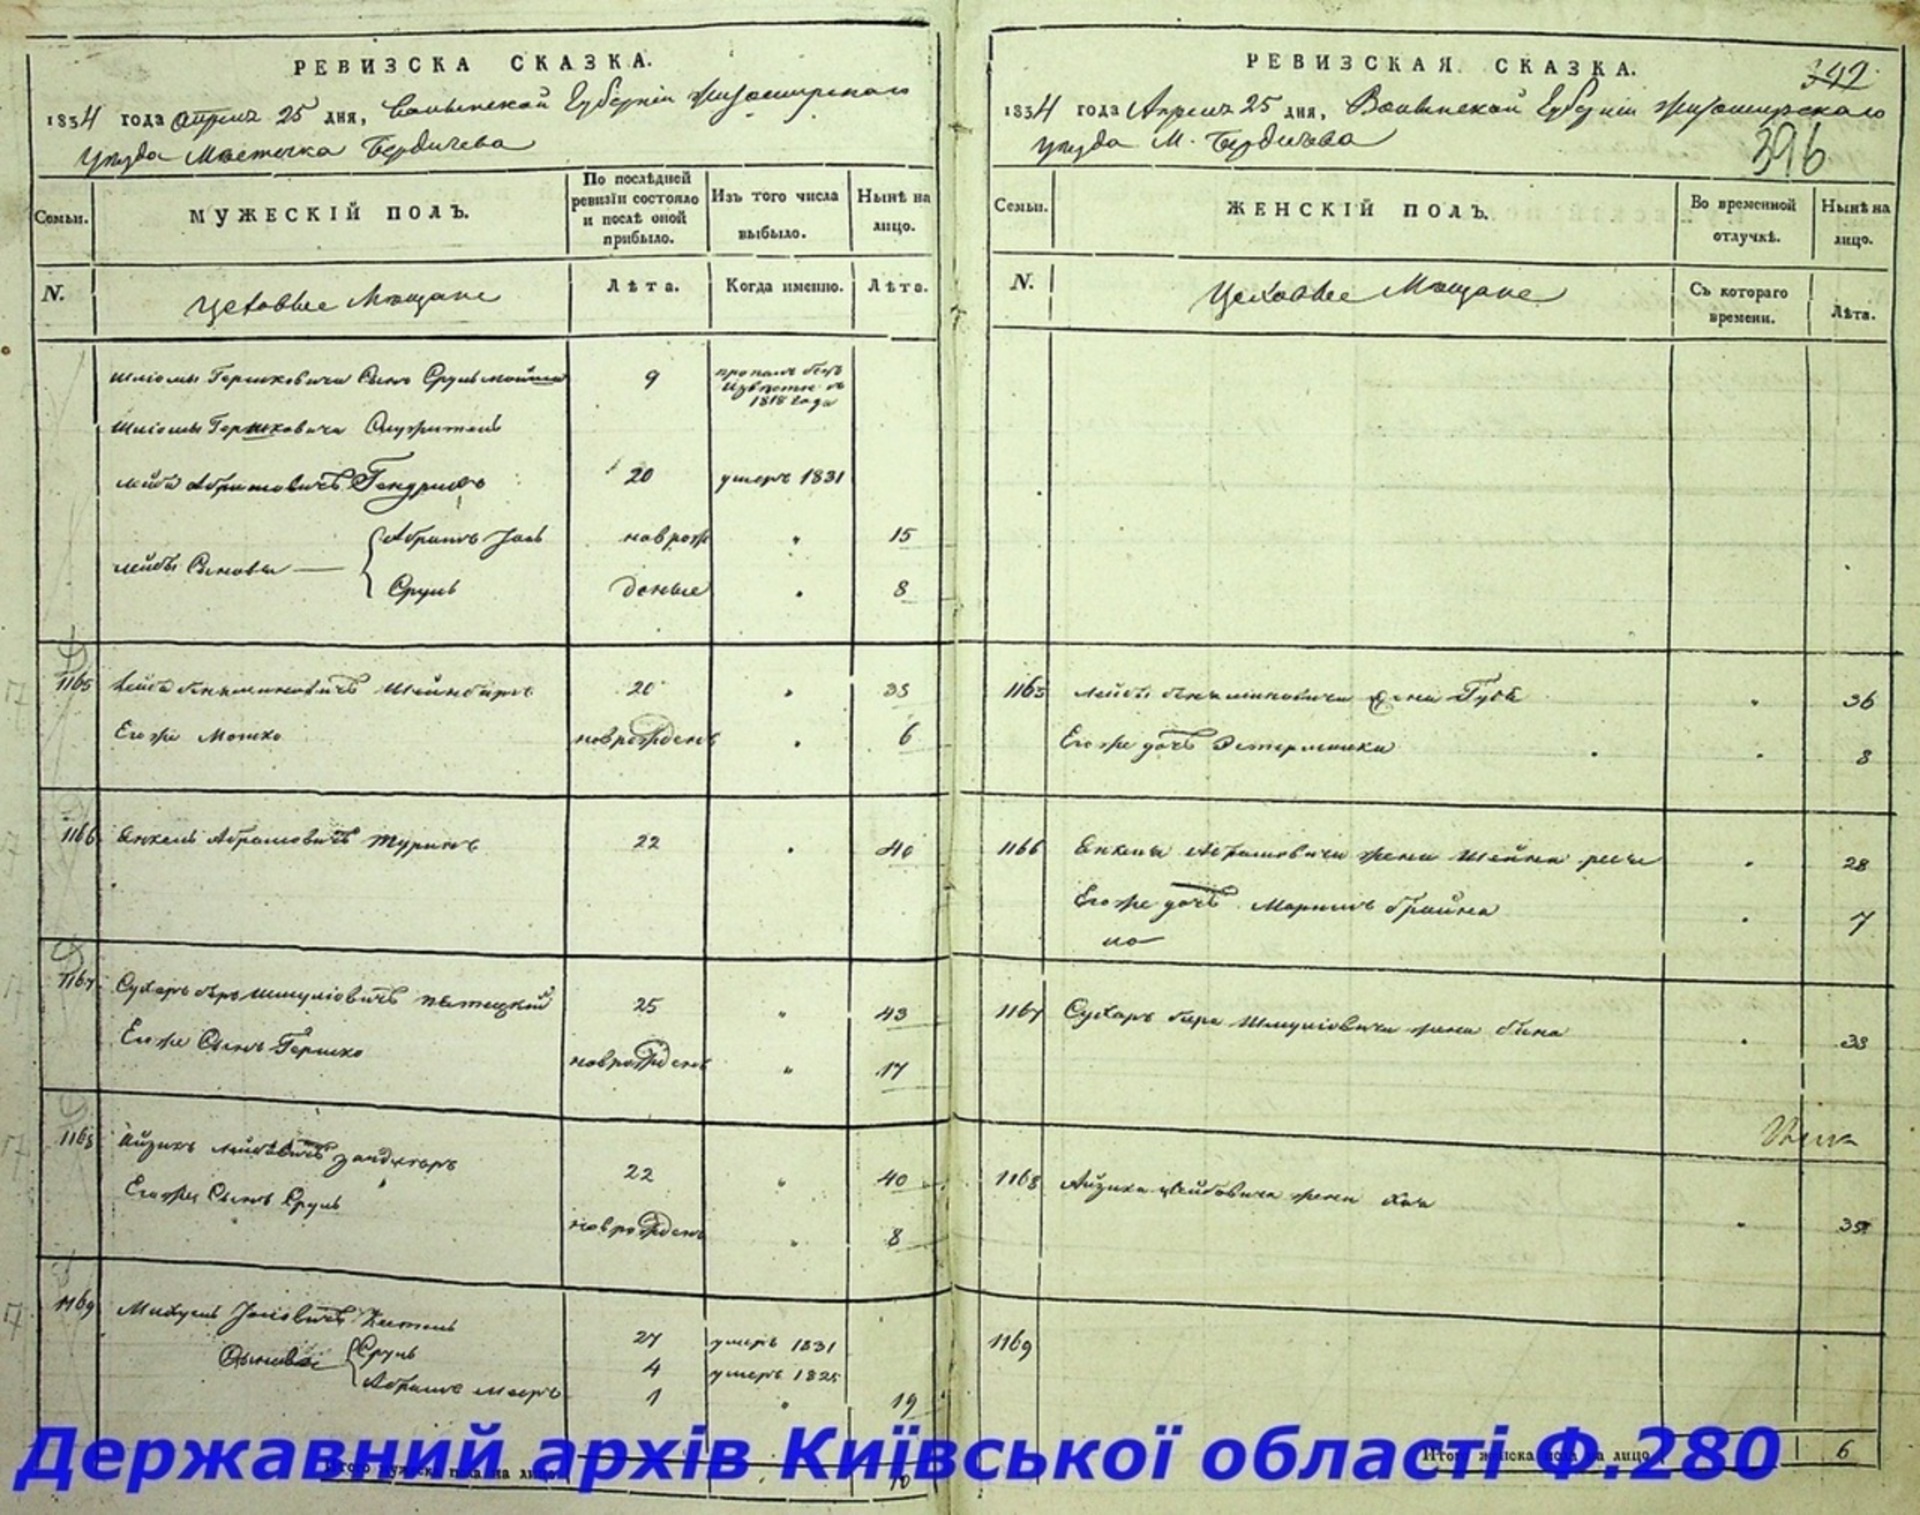 РЕВИЗСКА СКАЗКА.
1834 года Апреля 25 дня, Волынской Губернiи Житомирского
уезда Местечка Бердичева
Семьи.
МУЖЕСКIЙ ПОЛЪ.
По послѣдней ревизiи состояло и послѣ оной прибыло.
Изъ того числа выбыло.
Нынѣ на лицо.
N.
Цеховые Мещане
Лѣта.
Когда именно.
Лѣта.
Шлiомы Гершковича Сынъ Сруль 9 пропалъ безъ
Извѣстно съ
1818 года
Шлiомы Гершковича
Лейба Абрамовичъ 20 умеръ 1831
Абрамъ Iось новрож 15
Лейбы Сыновы
Сруль денные 8
1165 Лейба 20 35
Его же Мошко новрожденъ 6
1166 Янкель Абрамовичъ Туринъ 22 40
1167 Сухаръ беръ Шмулiовичъ 25 43
Его же Сынъ Гершко новрожденъ 17
1168 Айзикъ Лейбовичъ 22 40
Его же Сынъ Сруль новрожденъ 8
1169 Iосiовичъ 27 умеръ 1831
Сыновья Сруль 4 умеръ 1825
Абрамъ Мееръ 1 19
Итого мужска пола на лицо 10
РЕВИЗСКАЯ СКАЗКА.
392
1834 года Апреля 25 дня, Волынской Губернiи Житомирского
396
уезда М. Бердичева
Семьи.
ЖЕНСКIЙ ПОЛЪ.
Во временной отлучкѣ.
Нынѣ на лицо.
N.
Цеховые Мещане
Съ котораго времени.
Лѣта.
1165 Лейбы жена 36
Его же дочь 8
1166 Янкеля Абрамовича жена Шейна 28
Его же дочь 7
1167 Сухаръ бера Шмулiовича жена 38
1168 Айзика Лейбовича жена Хая
1169
Итого женска пола на лицо 6
Державний архів Київської області Ф.280